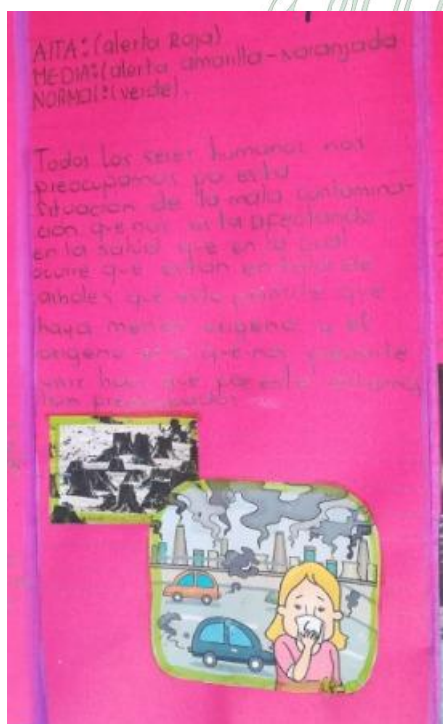 ALTA: (alerta Roja)
MEDIA: (alerta amarilla - naranjada
NORMAL: (verde).
Todos Los seres humanos nos
preocupamos por esta
situación de la mala contamina-
ción que nos esta afectando
en la salud que en la cual
ocurre que están en tala de
arboles que esto permite que
haya menos oxigeno y el
oxigeno es el que nos permite
vivir